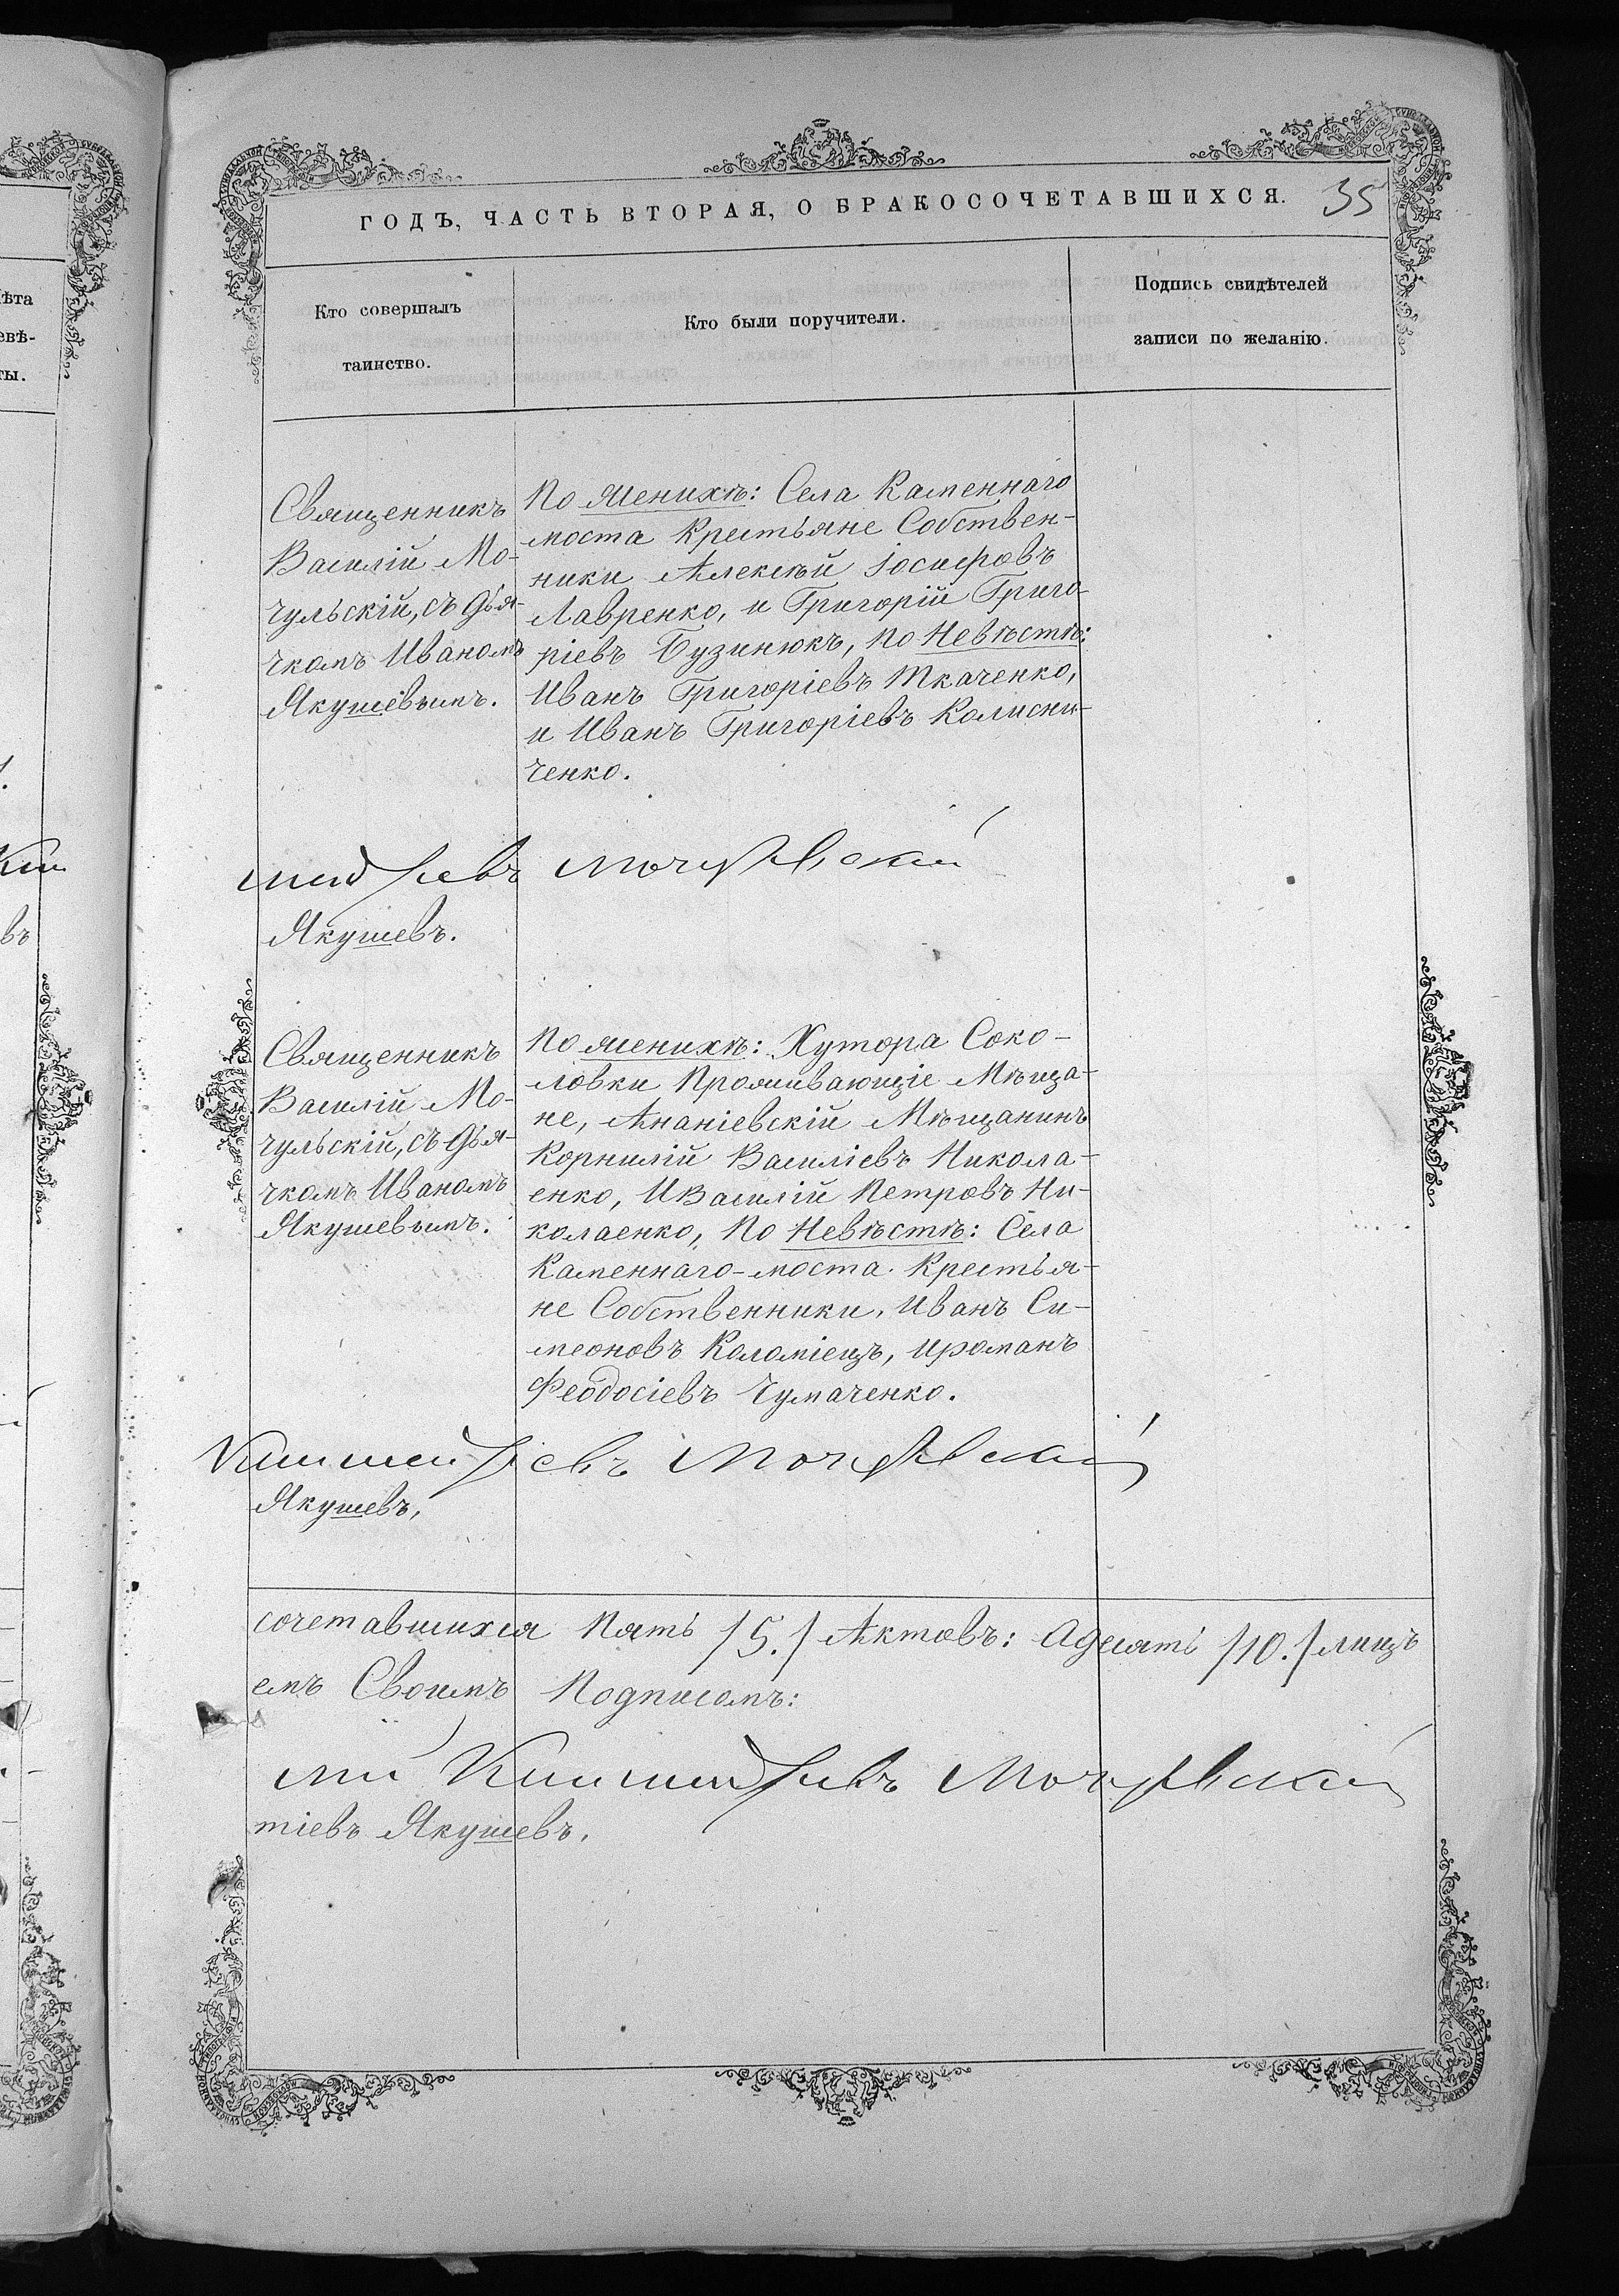 ГОДЪ, ЧАСТЬ ВТОРАЯ, О БРАКОСОЧЕТАВШИХСЯ. 35
Кто совершалъ
таинство.
Кто были поручители.
Подпись свидѣтелей
записи по желанію.
Священникъ
Василій Мо-
чульскій, съ Дья-
чкомъ Иваномъ
Якушевымъ.
По Женихѣ: Села Каменнаго
моста Крестьяне Собствен-
ники Алексѣй Іосифовъ
Лавренко, и Григорій Григо-
ріевъ Бузинюкъ, По Невѣстѣ:
Иванъ Григоріевъ Ткаченко,
и Иванъ Григоріевъ Колисни-
ченко.
Мочульскій
Якушевъ.
Священникъ
Василій Мо-
чульскій, съ Дья-
чкомъ Иваномъ
Якушевымъ.
По Женихѣ: Хутора Соко-
ловки Проживающіе Мѣща-
не, Ананіевскій Мѣщанинъ
Корнилій Василіевъ Никола-
енко, И Василій Петровъ Ни-
колаенко, По Невѣстѣ: Села
Каменнаго-моста Крестья-
не Собственники, Иванъ Си-
меоновъ Коломіецъ, И романъ
Феодосіевъ Чумаченко.
Мочульскій
Якушевъ,
сочетавшихся Пять /5./ Актовъ: А десять /10./ лицъ
емъ Своимъ Подписомъ:
лій Мочульскій
тіевъ Якушевъ.
ѣта
евѣ-
ты.
въ